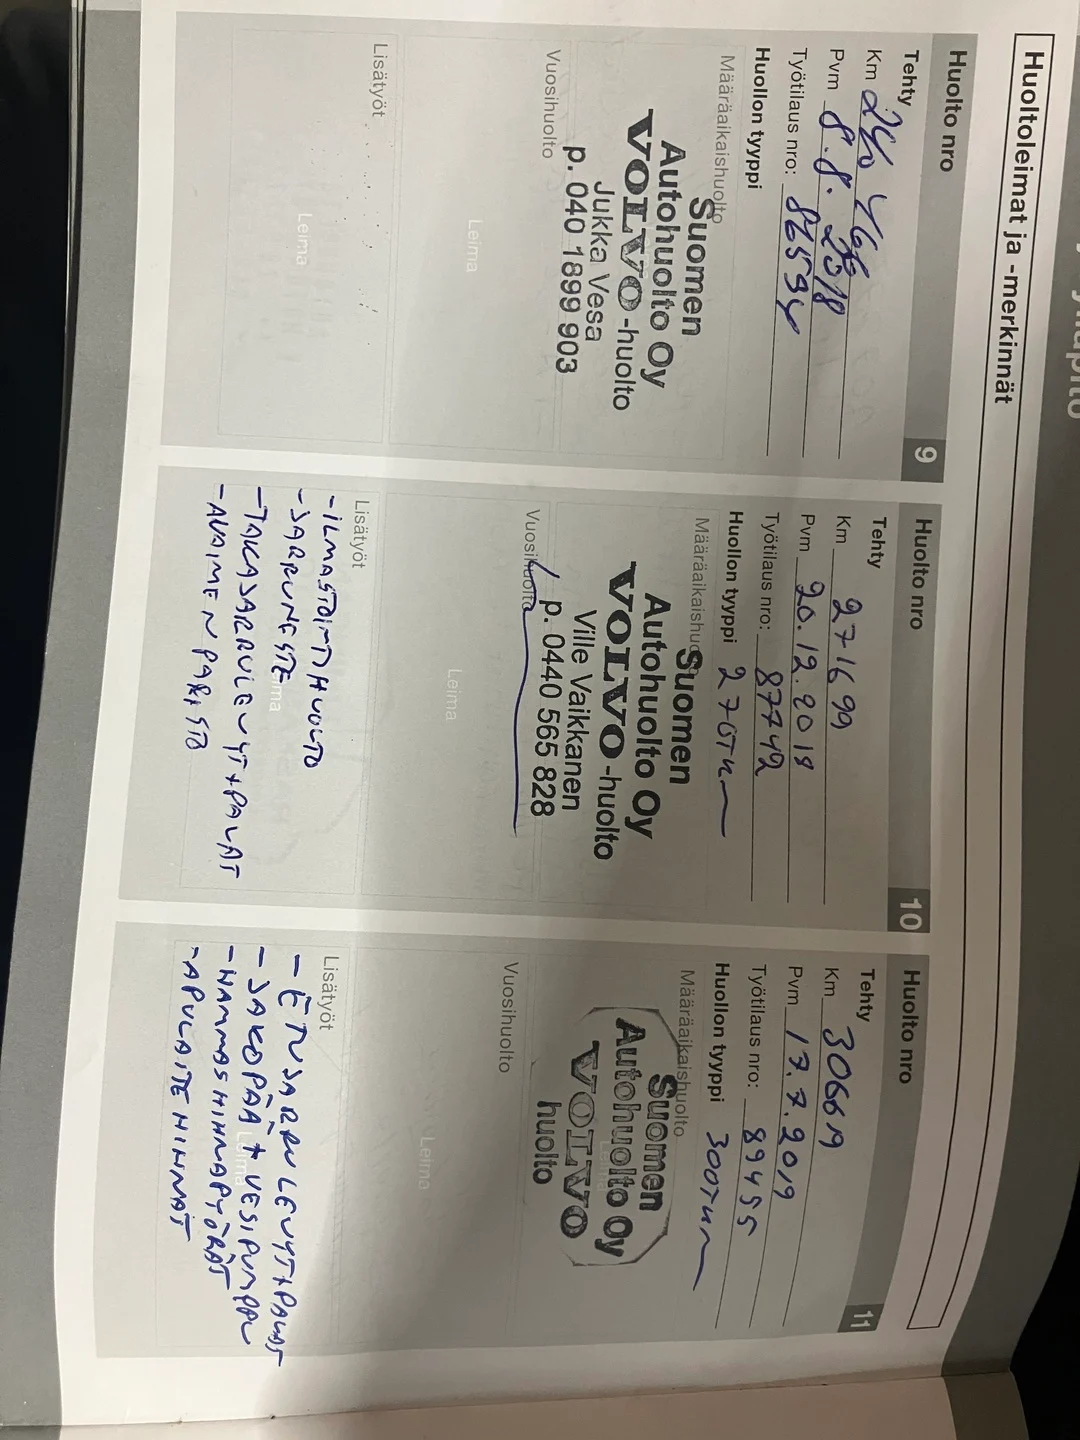 Huoltoleimat ja -merkinnät
Huolto nro 9
Tehty
Km 240 466
Pvm 8.8.2018
Työtilaus nro: 86594
Huollon tyyppi
Määräaikaishuolto
Suomen
Autohuolto Oy
VOLVO-huolto
Jukka Vesa
p. 040 1899 903
Vuosihuolto
Leima
Lisätyöt
Leima
Huolto nro 10
Tehty
Km 271699
Pvm 20.12.2018
Työtilaus nro: 87742
Huollon tyyppi 270TKM
Määräaikaishuolto
Suomen
Autohuolto Oy
VOLVO-huolto
Ville Vaikkanen
p. 0440 565 828
Vuosihuolto
Leima
Lisätyöt
-ILMASTOINTIHUOLTO
-JARRUNESTE
-TAKAJARRULEVYT+PALAT
-AVAIMEN PARISTO
Huolto nro 11
Tehty
Km 306619
Pvm 17.7.2019
Työtilaus nro: 89455
Huollon tyyppi 300TKM
Määräaikaishuolto
Suomen
Autohuolto Oy
VOLVO
huolto
Vuosihuolto
Leima
Lisätyöt
- ETUJARRULEVYT+PALAT
- JAKOPÄÄ + VESIPUMPPU
-HAMMASHIHNAPYÖRÄT
-APULAITEHIHNAT